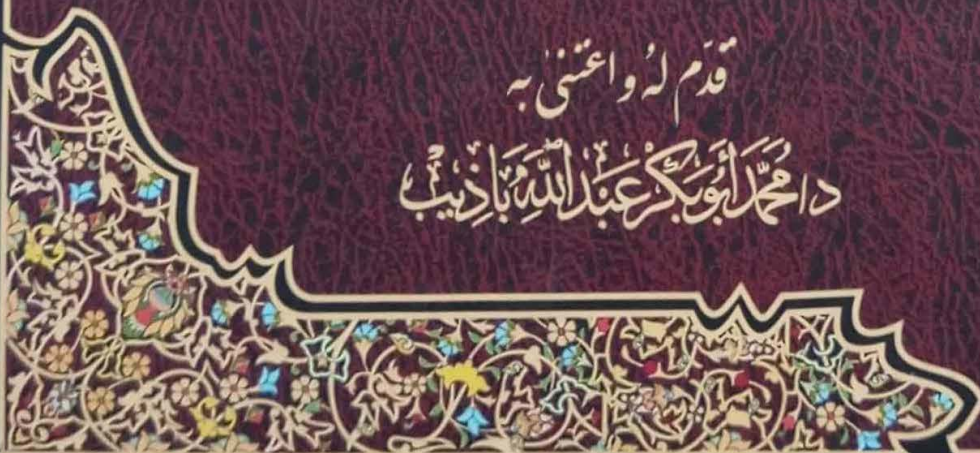 قدّم لهُ واعتنى به
د/محمّد أبوبكر عبدالله باذيب